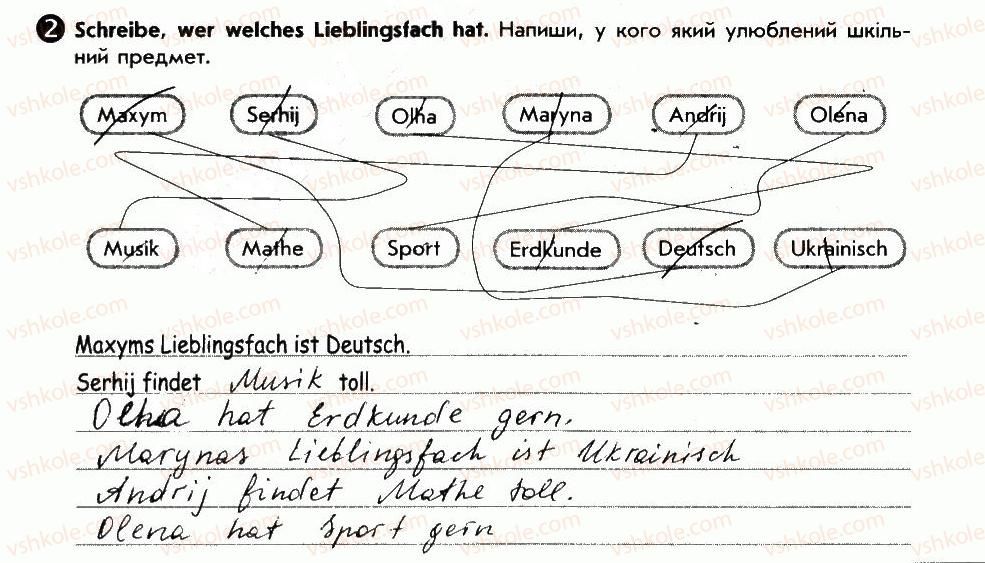 2 Schreibe, wer welches Lieblingsfach hat. Напиши, у кого який улюблений шкіль-
ний предмет.
Maxym Serhij Olha Maryna Andrij Olena
Musik Mathe Sport Erdkunde Deutsch Ukrainisch
Maxyms Lieblingsfach ist Deutsch.
Serhij findet Musik toll.
Olha hat Erdkunde gern.
Marynas Lieblingsfach ist Ukrainisch
Andrij findet Mathe toll.
Olena hat Sport gern
vshkole.com